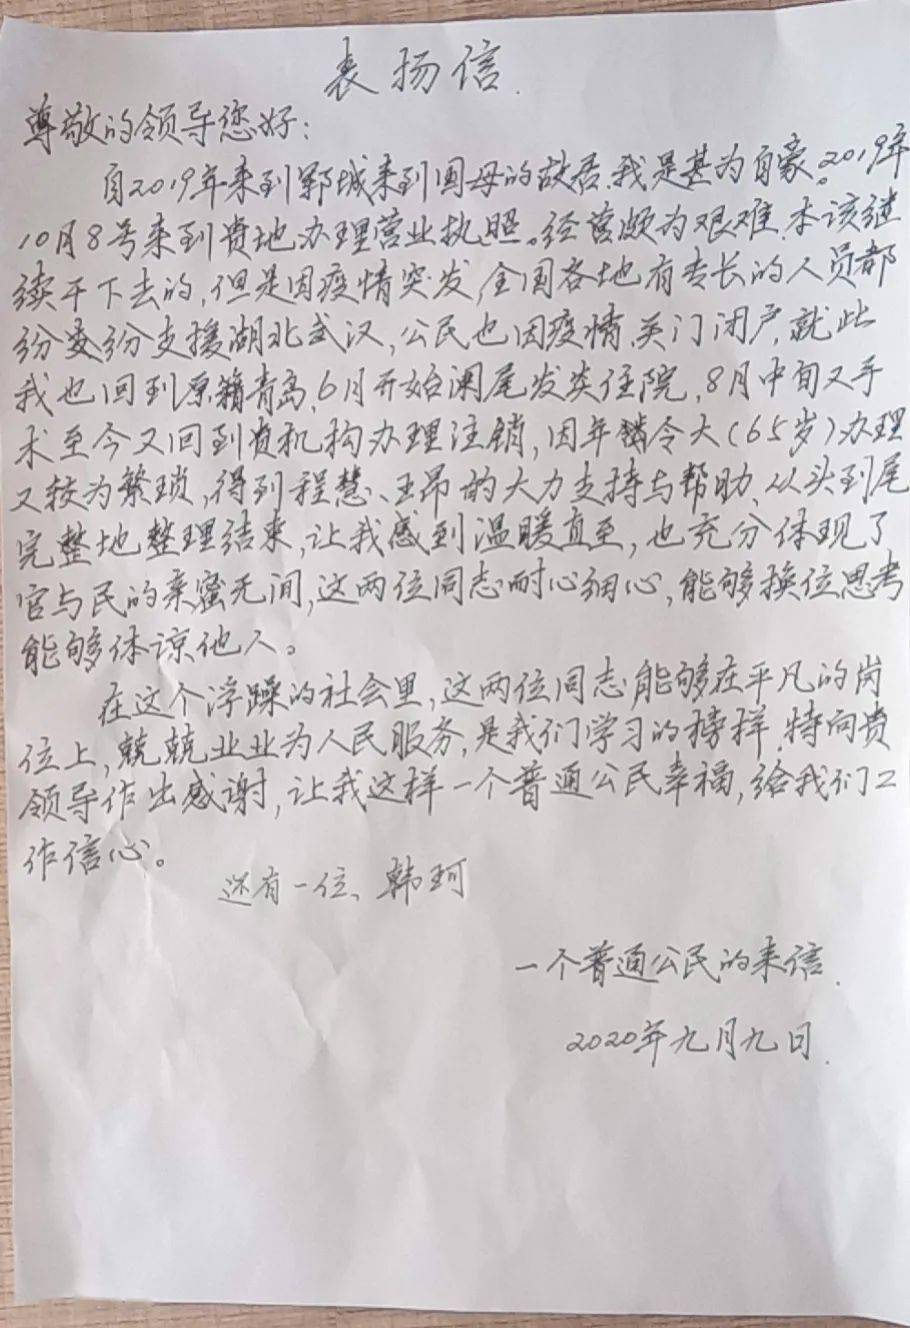 表扬信.
尊敬的领导您好:
自2019年来到郓城来到国母的故居.我是甚为自豪。2019年
10月8号来到贵地办理营业执照。经营颇为艰难.本该继
续干下去的,但是因疫情突发,全国各地有专长的人员都
纷纷支援湖北武汉,公民也因疫情.关门闭户,就此
我也回到原籍青岛,6月开始阑尾发炎住院,8月中旬又手
术至今又回到贵机构办理注销,因年龄大(65岁)办理
又较为繁琐,得到程慧、王昂的大力支持与帮助、从头到尾
完整地整理结束,让我感到温暖直至,也充分体现了
官与民的亲密无间,这两位同志耐心细心,能够换位思考
能够体谅他人。
在这个浮躁的社会里,这两位同志能够在平凡的岗
位上,兢兢业业为人民服务,是我们学习的榜样.特向贵
领导作出感谢,让我这样一个普通公民幸福,给我们工
作信心。
还有一位、韩珂
一个普通公民的来信.
2020年九月九日.